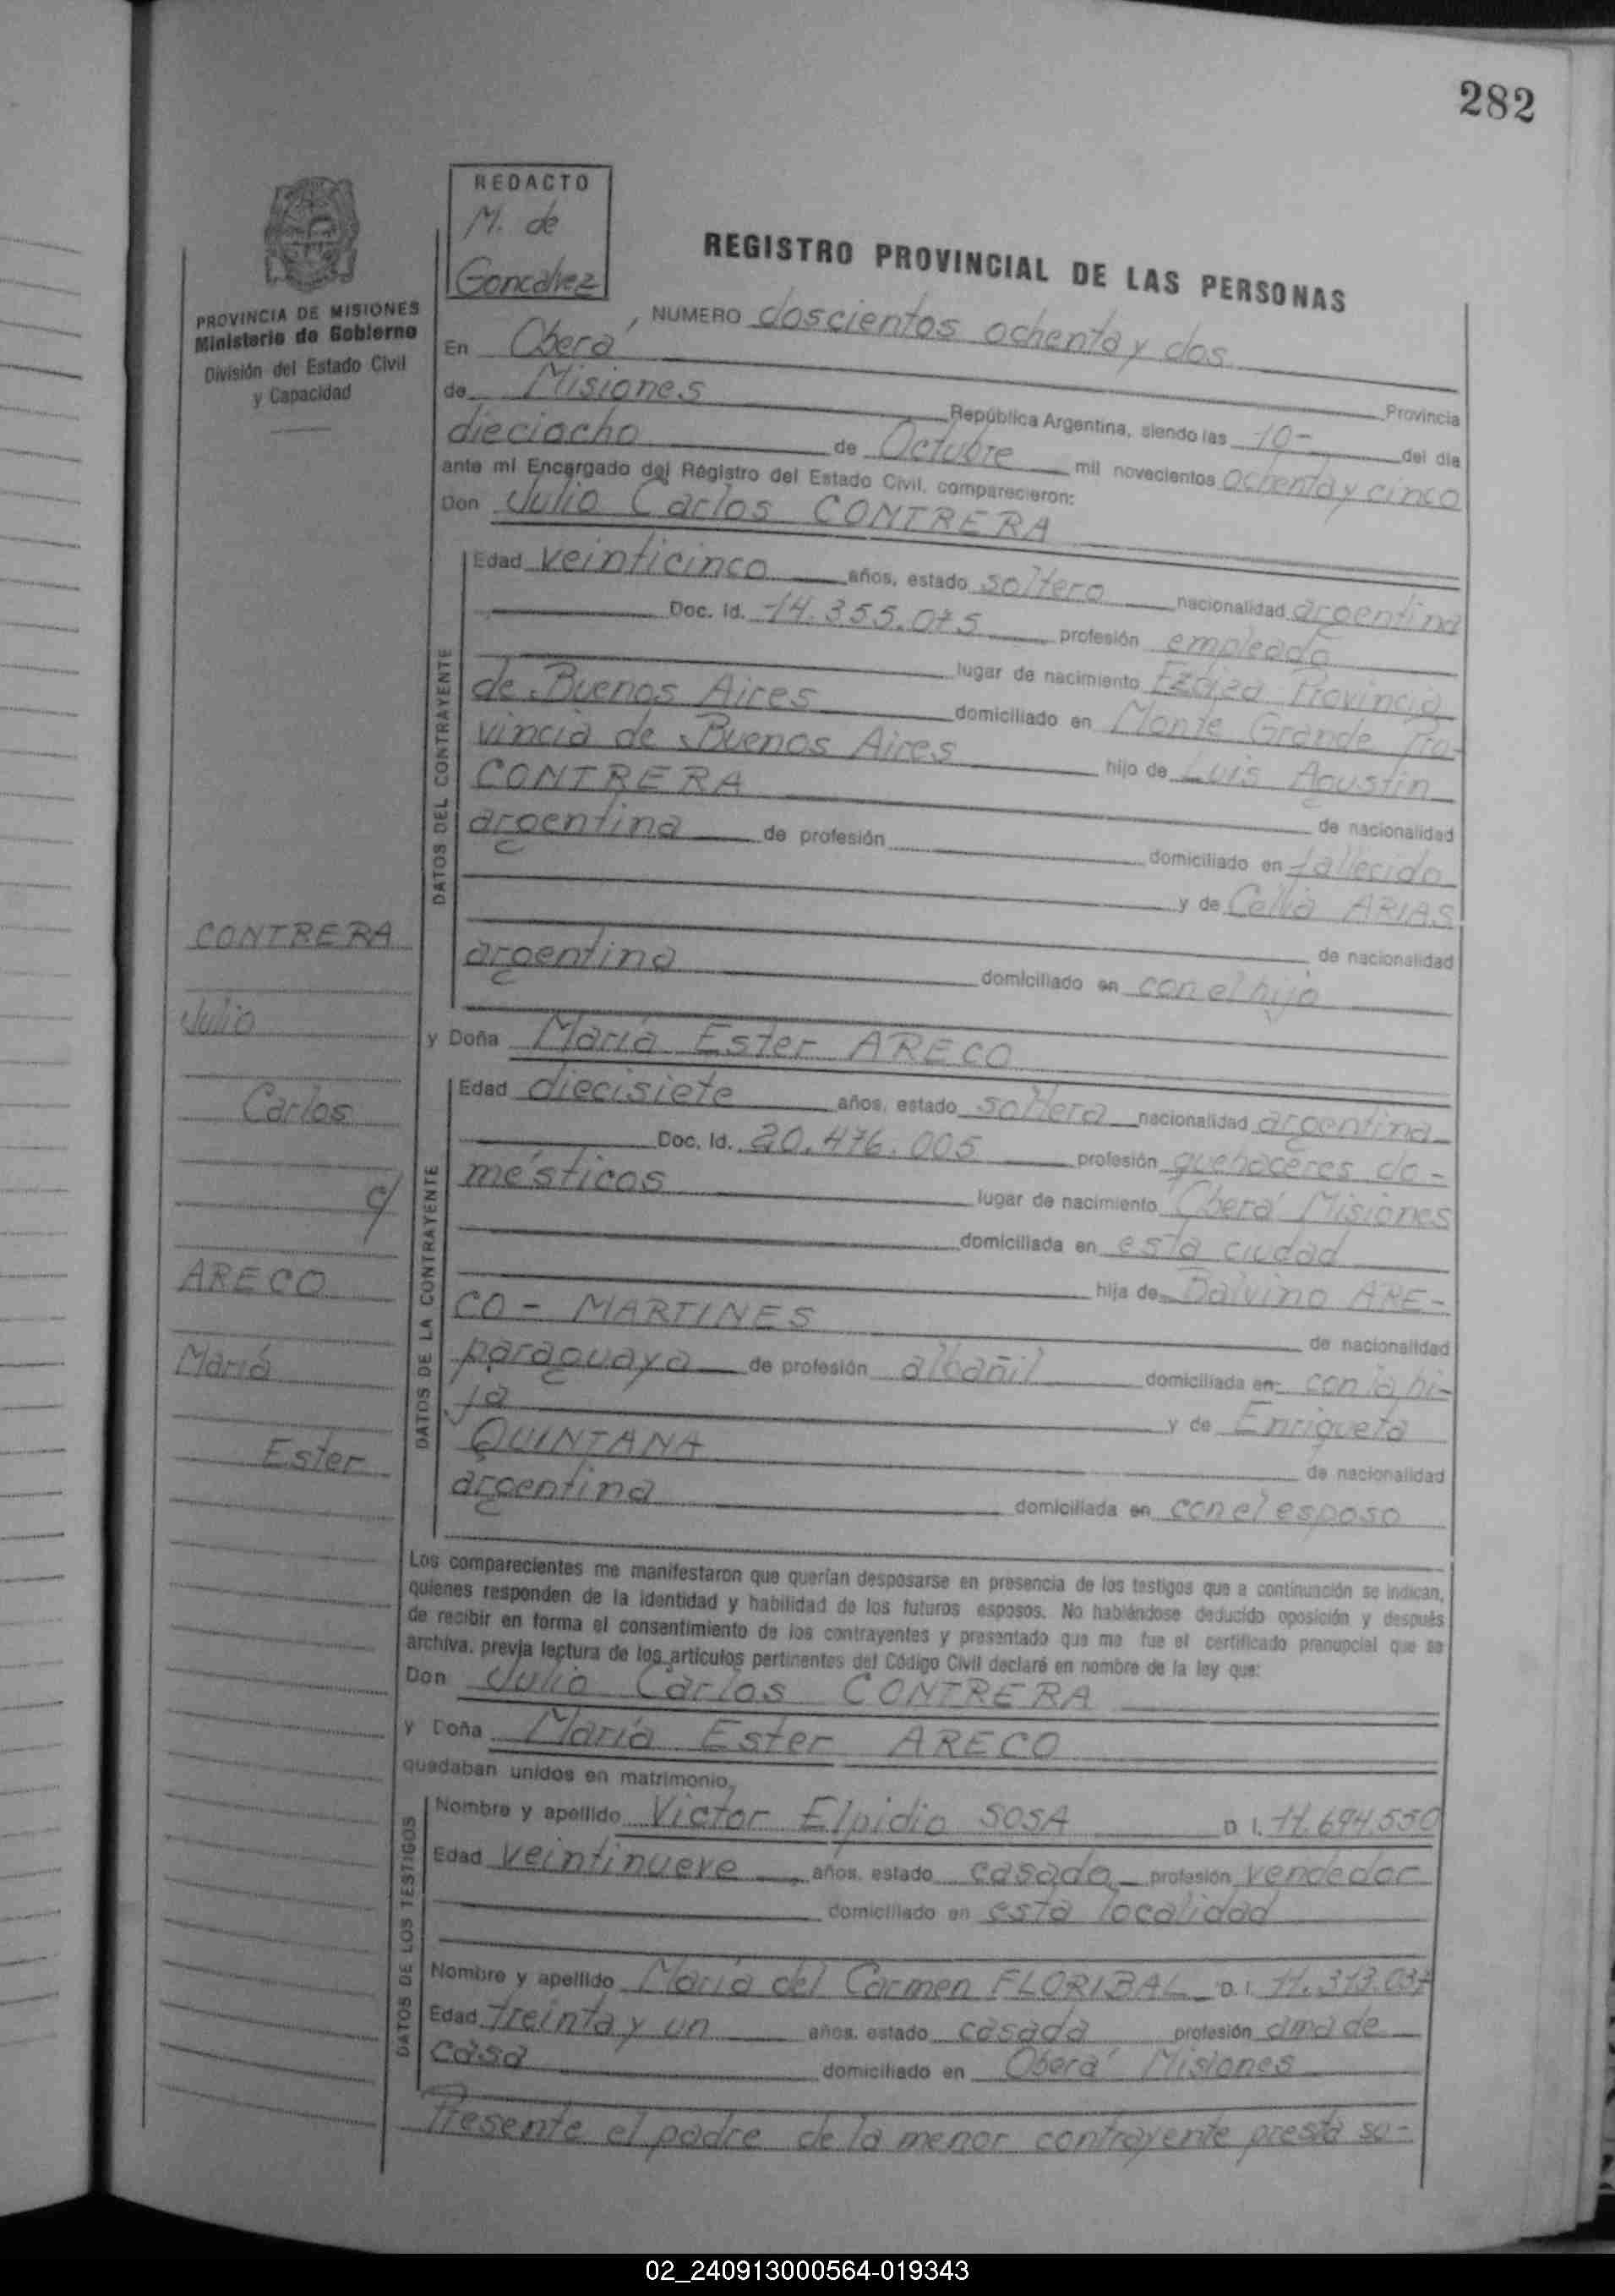 282
REDACTO
M. de
Goncalvez
REGISTRO PROVINCIAL DE LAS PERSONAS
PROVINCIA DE MISIONES
Ministerio de Gobierno
División del Estado Civil
y Capacidad
NUMERO doscientos ochenta y dos
En Oberá Provincia
de Misiones República Argentina, siendo las 10- del día
dieciocho de Octubre mil novecientos ochenta y cinco
ante mí Encargado del Registro del Estado Civil, comparecieron:
Don Julio Carlos CONTRERA
DATOS DEL CONTRAYENTE
Edad veinticinco años, estado soltero nacionalidad argentina
Doc. Id. 14.355.075 profesión empleado
lugar de nacimiento Ezeiza Provincia
de Buenos Aires domiciliado en Monte Grande Pro-
vincia de Buenos Aires hijo de Luis Agustín
CONTRERA de nacionalidad
argentina de profesión domiciliado en fallecido
y de Celia ARIAS
de nacionalidad
argentina domiciliado en con el hijo
y Doña María Ester ARECO
DATOS DE LA CONTRAYENTE
Edad diecisiete años, estado soltera nacionalidad argentina
Doc. Id. 20.476.005 profesión quehaceres do-
mésticos lugar de nacimiento Oberá Misiones
domiciliada en esta ciudad
hija de Balvino ARE-
CO - MARTINES de nacionalidad
paraguaya de profesión albañil domiciliada en con la hi-
ja y de Enriqueta
QUINTANA de nacionalidad
argentina domiciliada en con el esposo
CONTRERA
Julio
Carlos
c/
ARECO
María
Ester
Los comparecientes me manifestaron que querían desposarse en presencia de los testigos que a continuación se indican,
quienes responden de la identidad y habilidad de los futuros esposos. No habiéndose deducido oposición y después
de recibir en forma el consentimiento de los contrayentes y presentado que me fue el certificado prenupcial que se
archiva, previa lectura de los artículos pertinentes del Código Civil declaré en nombre de la ley que:
Don Julio Carlos CONTRERA
y Doña María Ester ARECO
quedaban unidos en matrimonio,
DATOS DE LOS TESTIGOS
Nombre y apellido Victor Elpidio SOSA D.I. 11.694.550
Edad veintinueve años, estado casado profesión vendedor
domiciliado en esta localidad
Nombre y apellido María del Carmen FLORIBAL D.I. 11.313.037
Edad treinta y un años, estado casada profesión ama de
casa domiciliado en Oberá Misiones
Presente el padre de la menor contrayente presta so-
02_240913000564-019343